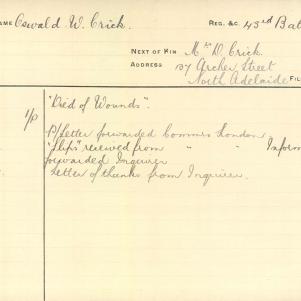 NAME Oswald W. Crick. REG. &C. 43rd Bat
NEXT OF KIN Mrs D. Crick.
ADDRESS 137 Archer Street
North Adelaide FIL
"Died of Wounds".
1/P P/Letter forwarded Commrs London
"Slips" received from " " Inform
forwarded Inquirer
Letter of thanks from Inquirer.